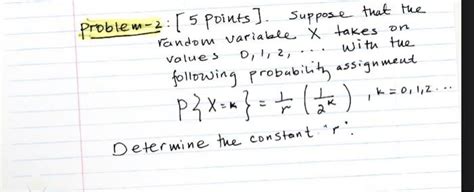 Problem-2: [5 Points]. Suppose that the
random variable X takes on
values 0, 1, 2, ... with the
following probability assignment
P{X=k} = 1/r (1/2^k), k=0,1,2...
Determine the constant "r".